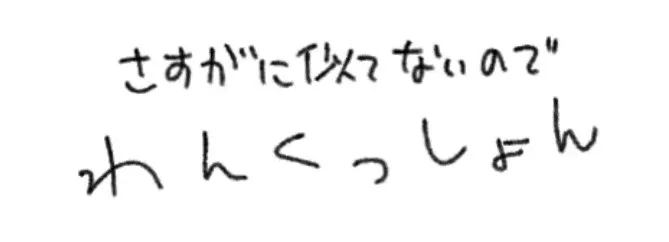 さすがに似てないので
れんくっしょん